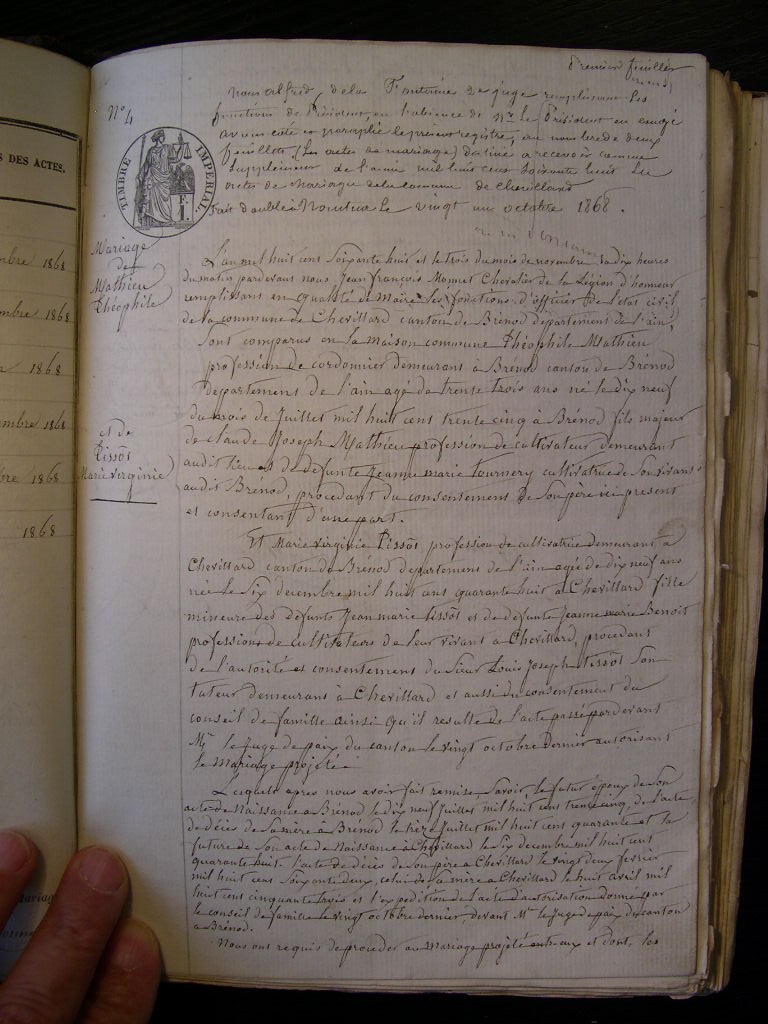 DES ACTES.
1868
1868
1868
1868
1868
1868
Premier feuillet
N° 4
TIMBRE IMPERIAL
Nous Alfred de la 2e juge remplissant les
fonctions de Président, en l'absence de Mr le Président en congé
avons coté et paraphé le présent registre, au nombre de deux
feuillets (les actes de mariage) destiné a recevoir comme
supplément de l'année mil huit cent soixante huit les
actes de Mariage de la commune de Chevillard
Fait double à Nantua le vingt un octobre 1868.
Mariage
de
Mathieu
Théophile
et de
Tissot
Marie Virginie
L'an mil huit cent soixante huit et le trois du mois de novembre à dix heures
du matin pardevant nous Jean François Monnet Chevalier de la Légion d'honneur
remplissant en qualité de Maire les fonctions d'officier de l'état civil
de la commune de Chevillard canton de Brénod département de l'ain,
sont comparus en la maison commune Théophile Mathieu
profession de cordonnier demeurant à Brénod canton de Brénod
département de l'ain agé de trente trois ans né le dix neuf
du mois de Juillet mil huit cent trente cinq à Brénod fils majeur
de claude Joseph Mathieu profession de cultivateur demeurant
audit lieu et de defunte Jeanne marie Tournery cultivatrice de son vivant
audit Brénod, procédant du consentement de son père ici present
et consentant d'une part.
Et Marie Virginie Tissot profession de cultivatrice demeurant à
Chevillard canton de Brénod departement de l'ain agée de dix neuf ans
née le six decembre mil huit cent quarante huit a Chevillard fille
mineure des defunts Jean marie Tissot et de defunte Jeanne marie Benoit
profession de cultivateurs de leur vivant a Chevillard, procedant
de l'autorité et consentement du Sieur Louis Joseph Tissot son
tuteur demeurant à Chevillard et aussi du consentement du
conseil de famille ainsi qu'il resulte de l'acte passé pardevant
Mr le Juge de paix du canton le vingt octobre dernier autorisant
le Mariage projeté.
Lesquels apres nous avoir fait remise, savoir, le futur époux de son
acte de Naissance a Brénod le dix neuf Juillet mil huit cent trente cinq, de l'acte
de décès de sa mère à Brénod le treize Juillet mil huit cent quarante et la
future de son acte de Naissance à Chevillard le six decembre mil huit cent
quarante huit. l'acte de décès de son père a Chevillard le vingt deux fevrier
mil huit cent soixante deux, celui de sa mère a Chevillard le huit avril mil
huit cent cinquante trois et l'expédition de l'acte d'autorisation donné par
le conseil de famille le vingt octobre dernier, devant Mr le Juge de paix du canton
a Brénod.
Nous ont requis de proceder au mariage projeté entr'eux et dont les